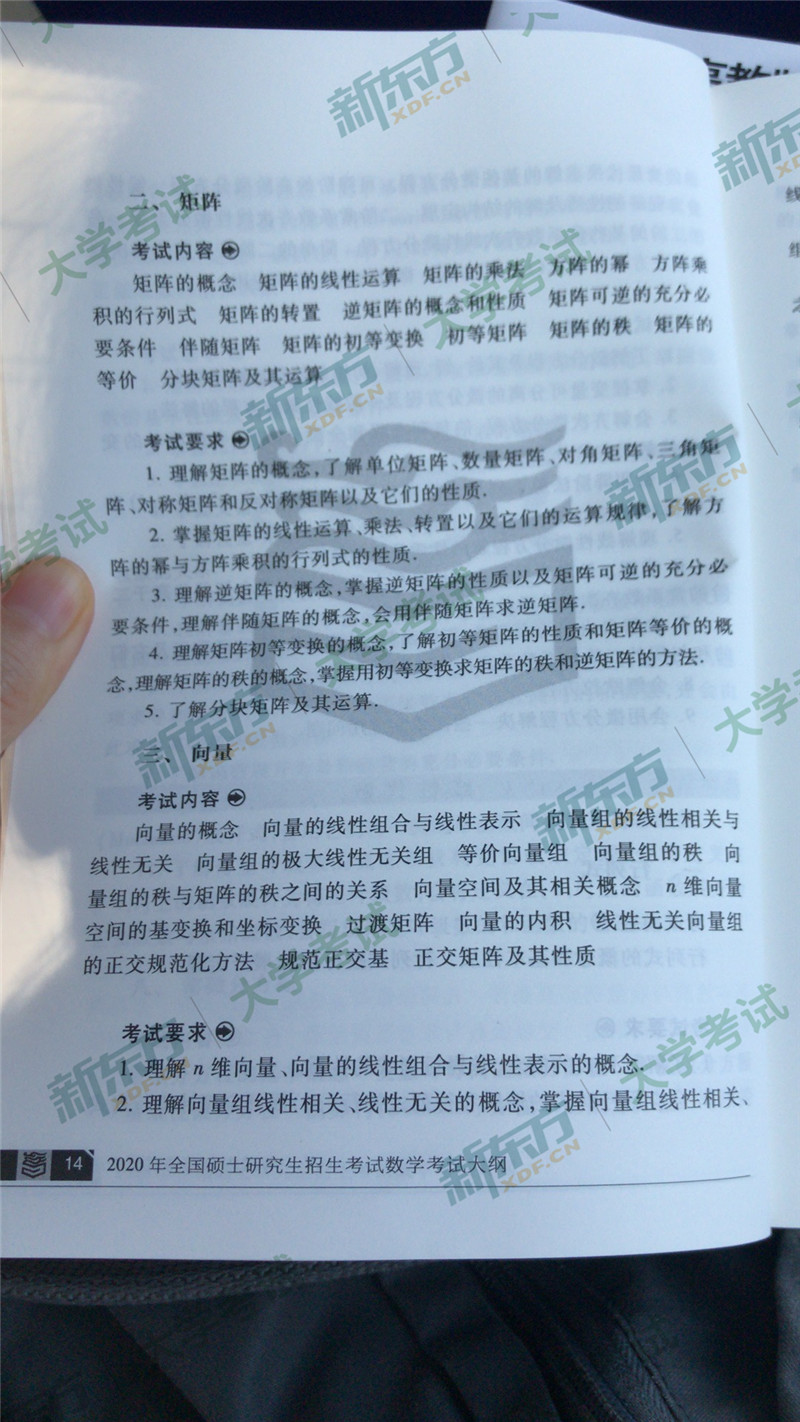 二、矩阵
考试内容
矩阵的概念 矩阵的线性运算 矩阵的乘法 方阵的幂 方阵乘
积的行列式 矩阵的转置 逆矩阵的概念和性质 矩阵可逆的充分必
要条件 伴随矩阵 矩阵的初等变换 初等矩阵 矩阵的秩 矩阵的
等价 分块矩阵及其运算
考试要求
1. 理解矩阵的概念,了解单位矩阵、数量矩阵、对角矩阵、三角矩
阵、对称矩阵和反对称矩阵以及它们的性质.
2. 掌握矩阵的线性运算、乘法、转置以及它们的运算规律,了解方
阵的幂与方阵乘积的行列式的性质.
3. 理解逆矩阵的概念,掌握逆矩阵的性质以及矩阵可逆的充分必
要条件,理解伴随矩阵的概念,会用伴随矩阵求逆矩阵.
4. 理解矩阵初等变换的概念,了解初等矩阵的性质和矩阵等价的概
念,理解矩阵的秩的概念,掌握用初等变换求矩阵的秩和逆矩阵的方法.
5. 了解分块矩阵及其运算.
三、向量
考试内容
向量的概念 向量的线性组合与线性表示 向量组的线性相关与
线性无关 向量组的极大线性无关组 等价向量组 向量组的秩 向
量组的秩与矩阵的秩之间的关系 向量空间及其相关概念 n 维向量
空间的基变换和坐标变换 过渡矩阵 向量的内积 线性无关向量组
的正交规范化方法 规范正交基 正交矩阵及其性质
考试要求
1. 理解 n 维向量、向量的线性组合与线性表示的概念.
2. 理解向量组线性相关、线性无关的概念,掌握向量组线性相关、
14 2020 年全国硕士研究生招生考试数学考试大纲
新东方 XDF.CN
大学考试